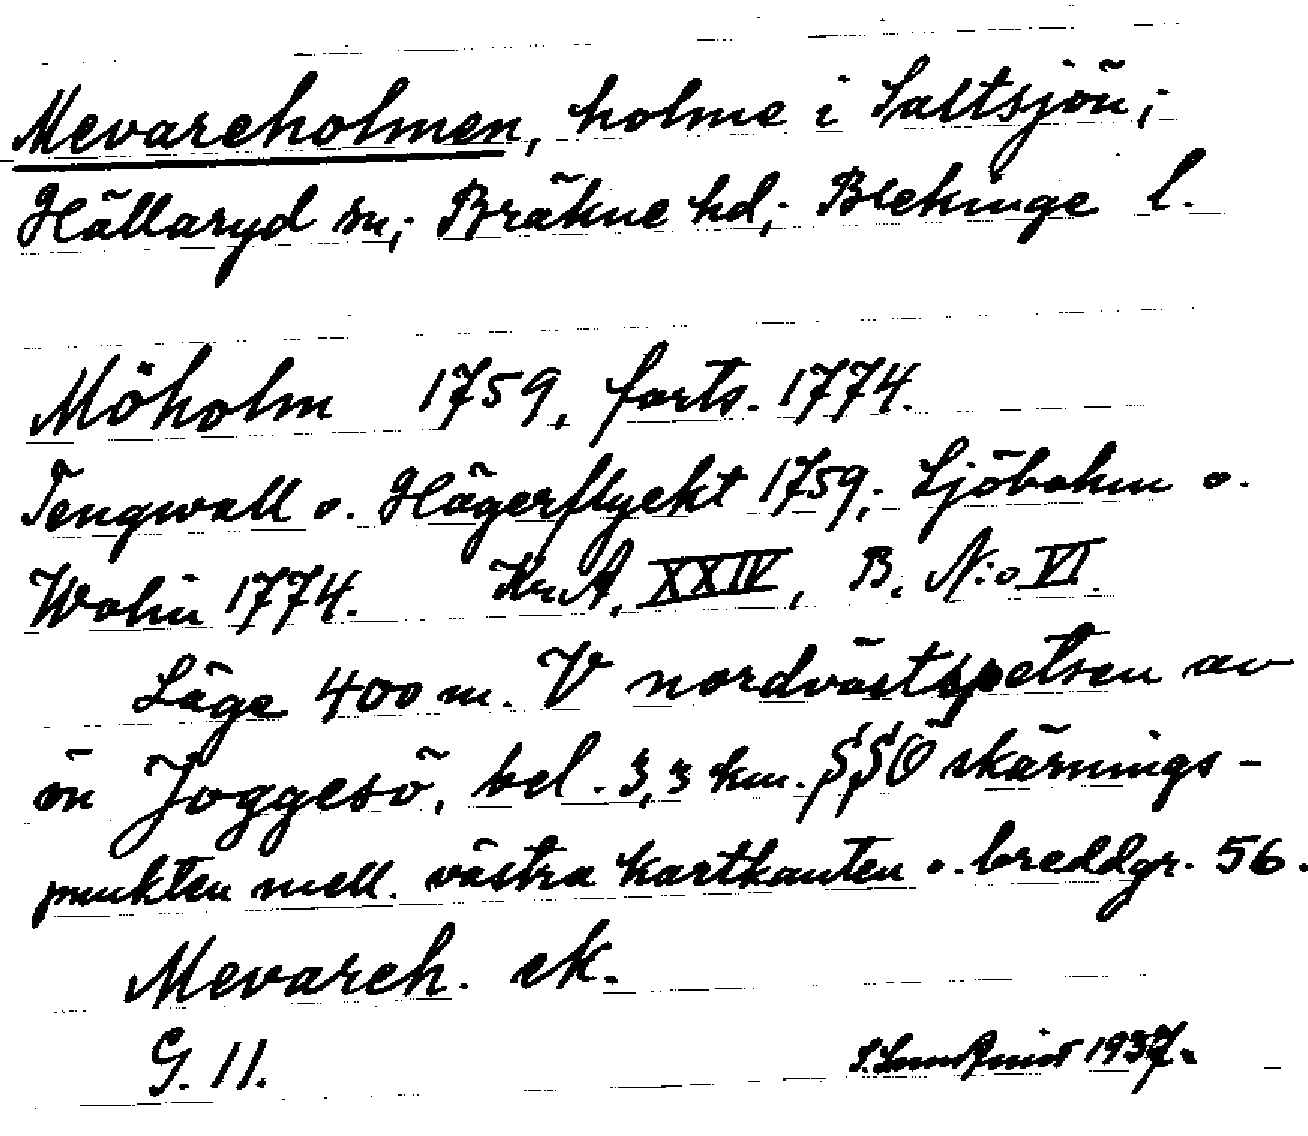 Mevareholmen, holme i Saltsjön;
Hällaryd sn; Bräkne hd; Blekinge l.
Möholm 1759, forts. 1774.
Tengwall o. Hägerflyckt 1759; Sjöbohm o.
Wolin 1774. Kr.A. XXIV, B. N:o VI.
Läge 400 m. V nordvästspetsen av
ön Joggesö, bel. 3,3 km. SSÖ skärnings-
punkten mell. västra kartkanten o. breddgr. 56.
Mevareh. ek.
G. 11. S. Lundquist 1937.